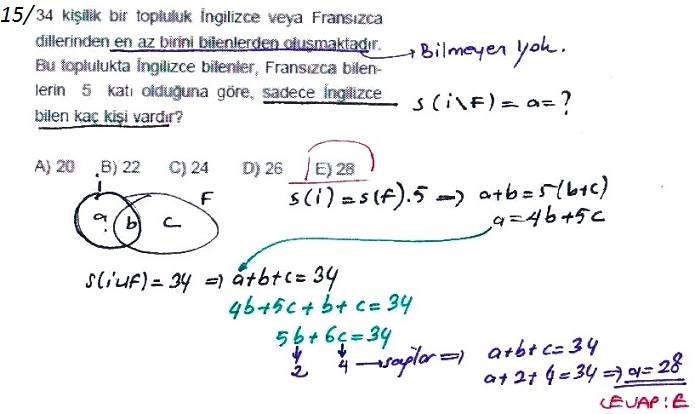 15/ 34 kişilik bir topluluk İngilizce veya Fransızca
dillerinden en az birini bilenlerden oluşmaktadır.
→ Bilmeyen yok.
Bu toplulukta İngilizce bilenler, Fransızca bilen-
lerin 5 katı olduğuna göre, sadece İngilizce
bilen kaç kişi vardır?
s(i\F) = a = ?
A) 20 B) 22 C) 24 D) 26 E) 28
i F
a b c
s(i) = s(f).5 => a+b = 5(b+c)
a = 4b+5c
s(iuf) = 34 => a+b+c = 34
4b+5c+b+c = 34
5b+6c = 34
2 4 → sayılar => a+b+c = 34
a+2+4 = 34 => a = 28
CEVAP: E